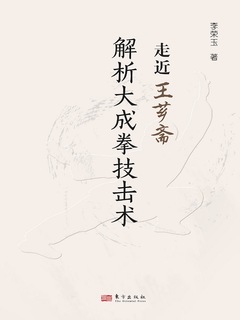 李荣玉 著
走近王芗斋
解析大成拳技击术
东方出版社